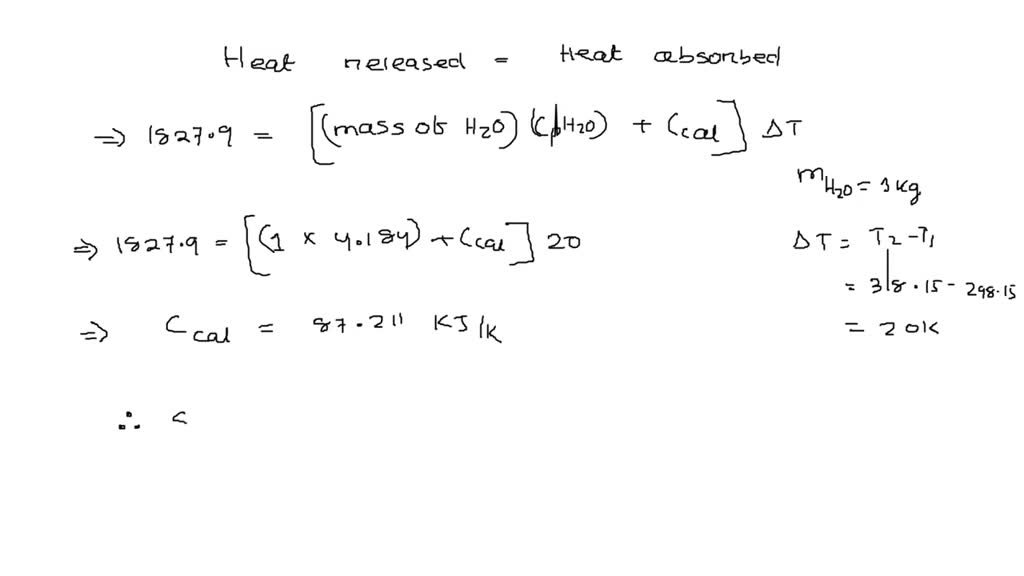 Heat released = Heat absorbed
=> 1827.9 = [(mass of H2O) (CpH2O) + Ccal] ΔT
mH2O = 1 kg
=> 1827.9 = [(1 x 4.184) + Ccal] 20
ΔT = T2 - T1
= 318.15 - 298.15
=> Ccal = 87.211 KJ/K
= 20K
∴